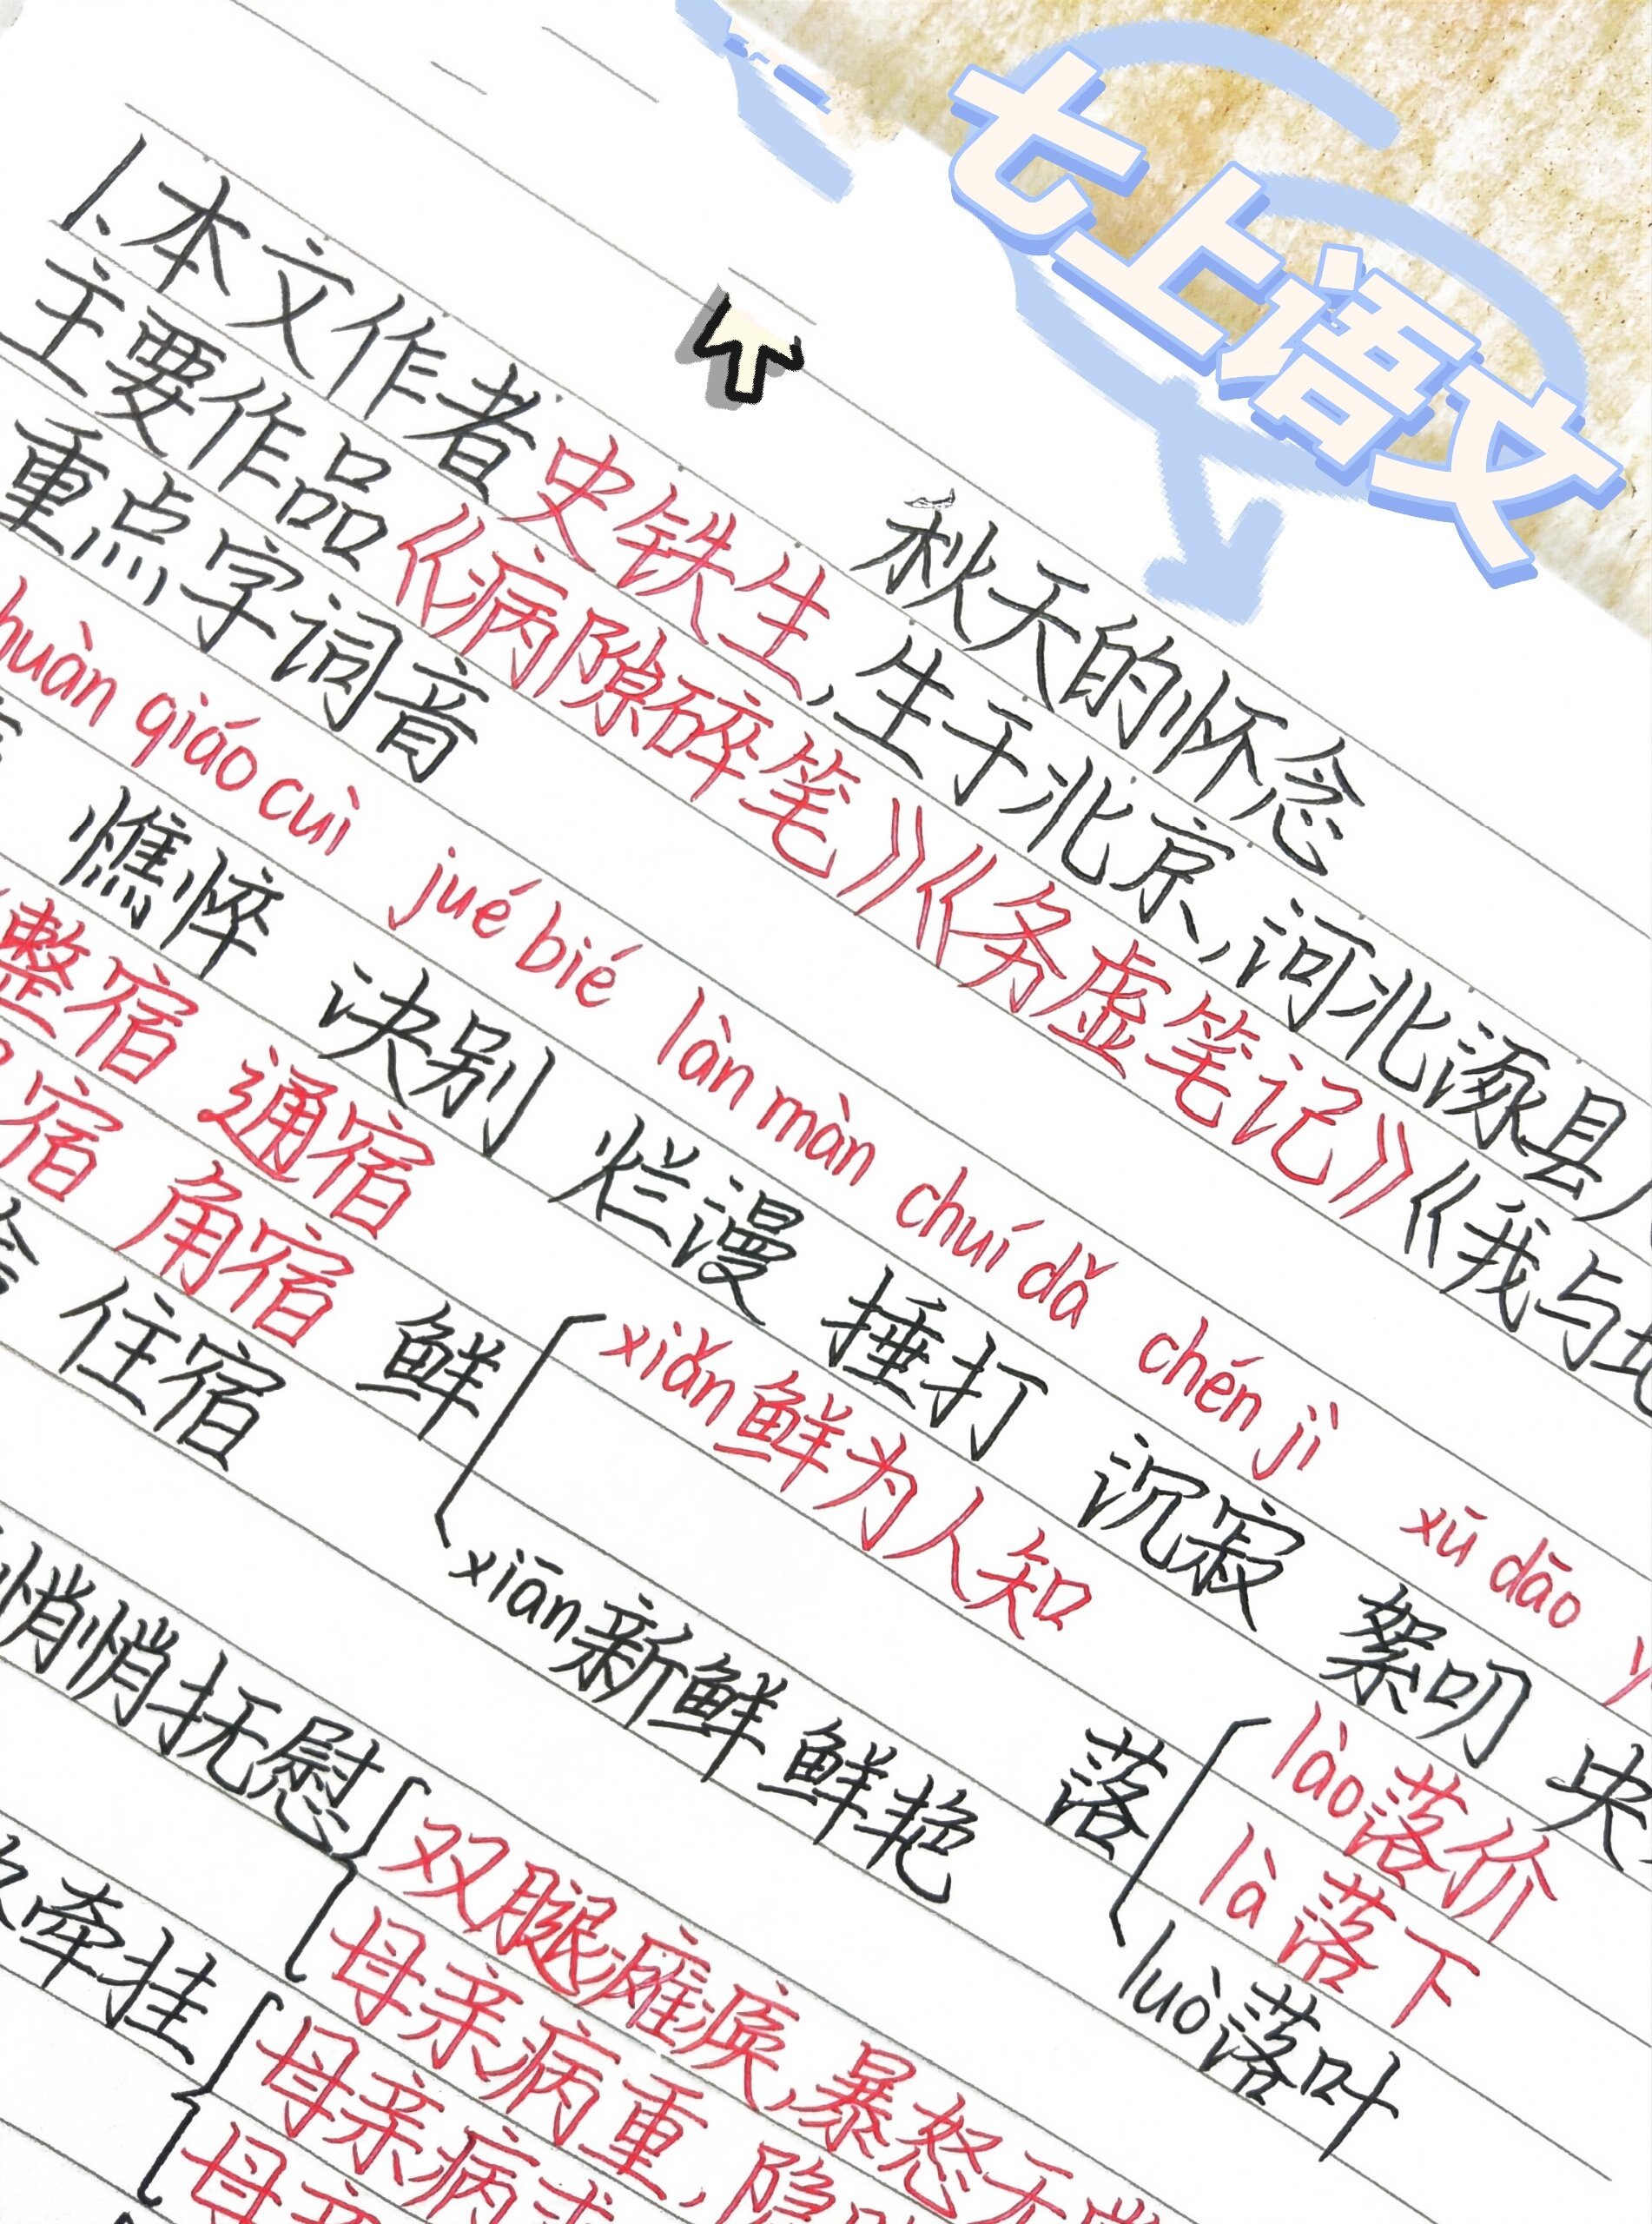 七上语文
秋天的怀念
1.本文作者史铁生,生于北京,河北涿县
主要作品《病隙碎笔》《务虚笔记》《我与
重点字词音
huàn qiáo cuì jué bié làn màn chuí dǎ chén jì xū dāo
憔悴 诀别 烂漫 捶打 沉寂 絮叨 央
整宿 通宿 xiǎn鲜为人知 lào落价
宿 角宿 鲜 落 là落下
住宿 xiān新鲜 鲜艳 luò落叶
悄悄抚慰 双腿瘫痪,暴怒无常
母亲病重,隐
牵挂 母亲病
母亲